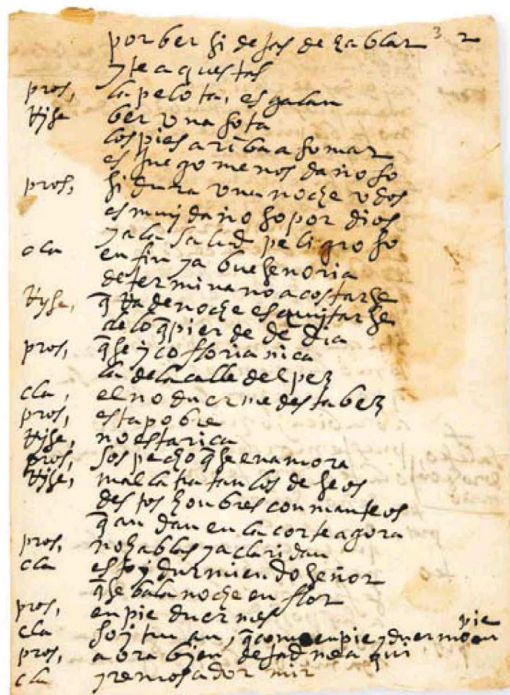 por ber si dejas de hablar 3 2
y te aquestas
pros, la pelota, es galan
Ryse ber una sota
los pies ariba a fomar
es juego menos dañoso
pros, si dura una noche u dos
es muy dañoso por dios
y a la salud peligroso
cla en fin ya bueseñoria
determina no acostarse
Ryse, q̄ Va de noche es quitarse
de lo q̄ pierde de dia
pros, q̄ se yço florianica
la de la calle del pez
cla, el no duerme desta bez
pros, esta pobre
Ryse, no esta rica
pros, sospecho q̄ se enamora
Ryse, mal la tratan los deseos
destos honbres con manteos
q̄ andan en la corte agora
pros, no hablas ya claridan
cla estoy durmiendo señor
q̄ se ba la noche en flor
pros, en pie duermes
cla soy truan, q̄ come en pie y duerme en pie
pros, aora bien dejadme aqui
cla yremos a dormir